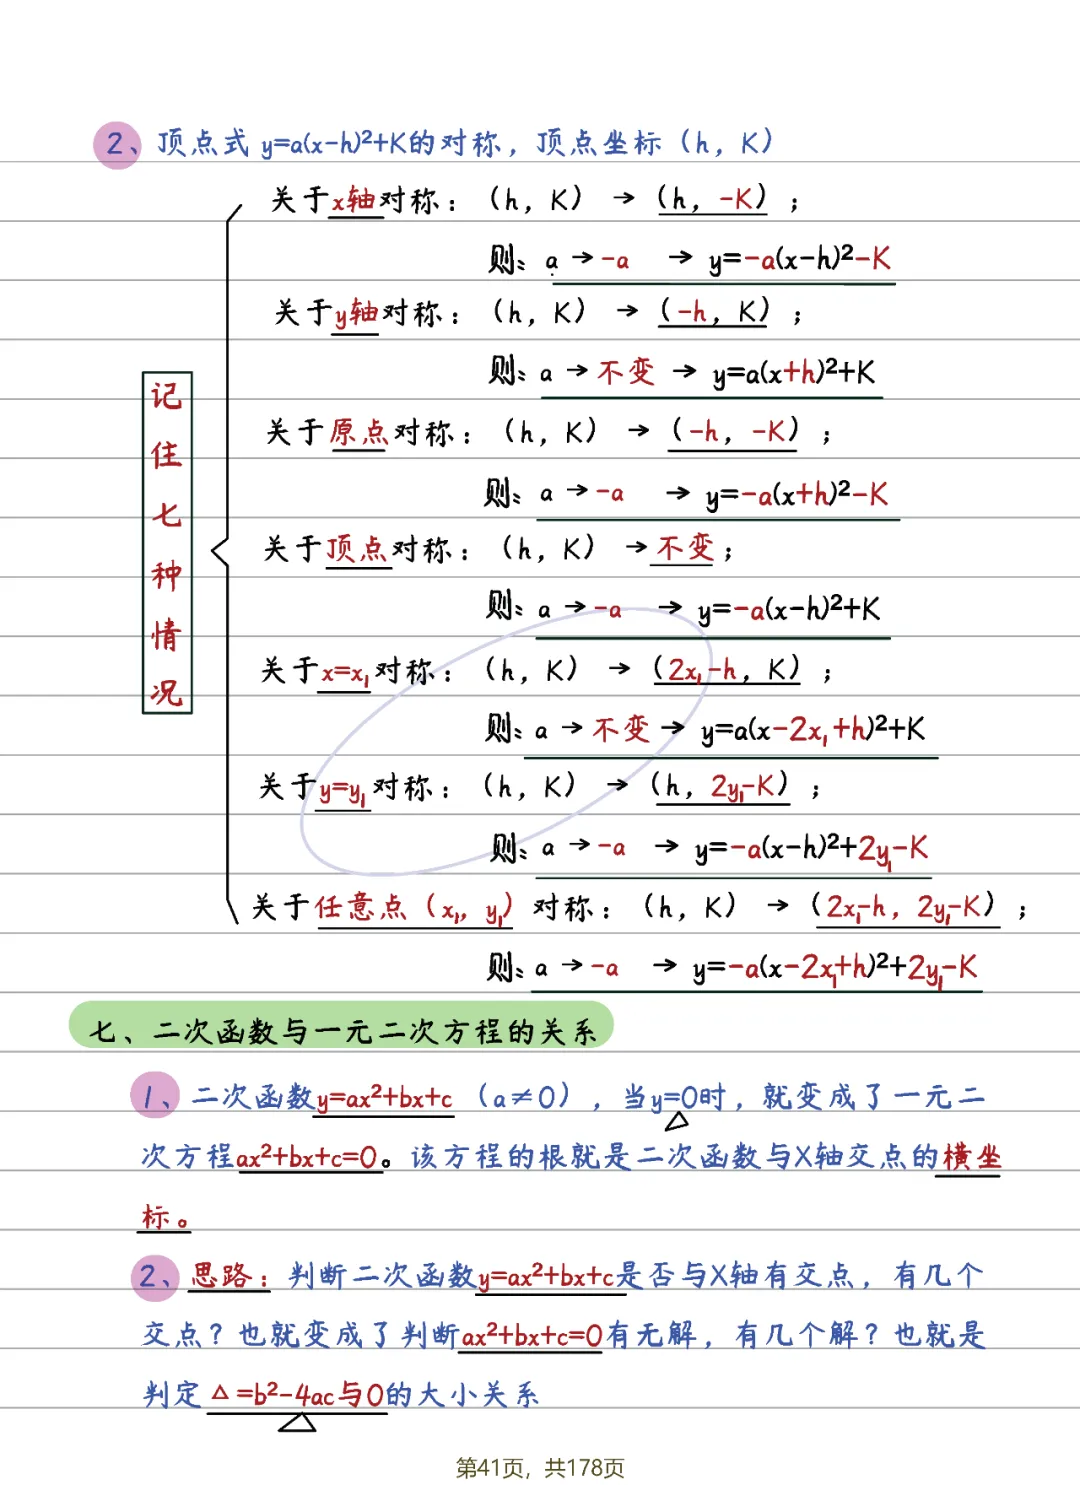 2、顶点式 y=a(x-h)²+K的对称，顶点坐标（h，K）
关于x轴对称：（h，K）→（h，-K）；
则：a→-a → y=-a(x-h)²-K
关于y轴对称：（h，K）→（-h，K）；
则：a→不变→ y=a(x+h)²+K
关于原点对称：（h，K）→（-h，-K）；
则：a→-a → y=-a(x+h)²-K
关于顶点对称：（h，K）→不变；
则：a→-a → y=-a(x-h)²+K
关于x=x₁对称：（h，K）→（2x₁-h，K）；
则：a→不变→ y=a(x-2x₁+h)²+K
关于y=y₁对称：（h，K）→（h，2y₁-K）；
则：a→-a → y=-a(x-h)²+2y₁-K
关于任意点（x₁，y₁）对称：（h，K）→（2x₁-h，2y₁-K）；
则：a→-a → y=-a(x-2x₁+h)²+2y₁-K
记住七种情况
七、二次函数与一元二次方程的关系
1、二次函数y=ax²+bx+c（a≠0），当y=0时，就变成了一元二
次方程ax²+bx+c=0。该方程的根就是二次函数与X轴交点的横坐
标。
2、思路：判断二次函数y=ax²+bx+c是否与X轴有交点，有几个
交点？也就变成了判断ax²+bx+c=0有无解，有几个解？也就是
判定△=b²-4ac与0的大小关系
第41页，共178页